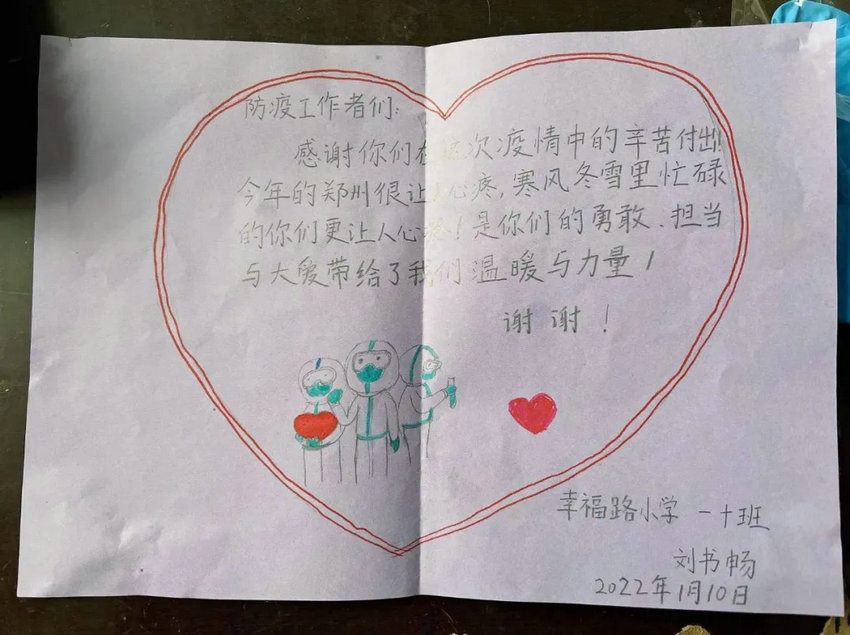 防疫工作者们:
感谢你们在这次疫情中的辛苦付出!
今年的郑州很让人心疼,寒风冬雪里忙碌
的你们更让人心疼!是你们的勇敢、担当
与大爱带给了我们温暖与力量!
谢谢!
幸福路小学 一十班
刘书畅
2022年1月10日